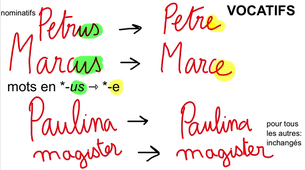 nominatifs
VOCATIFS
Petrus → Petre
Marcus → Marce
mots en *-us → *-e
Paulina → Paulina
magister → magister
pour tous
les autres:
inchangés